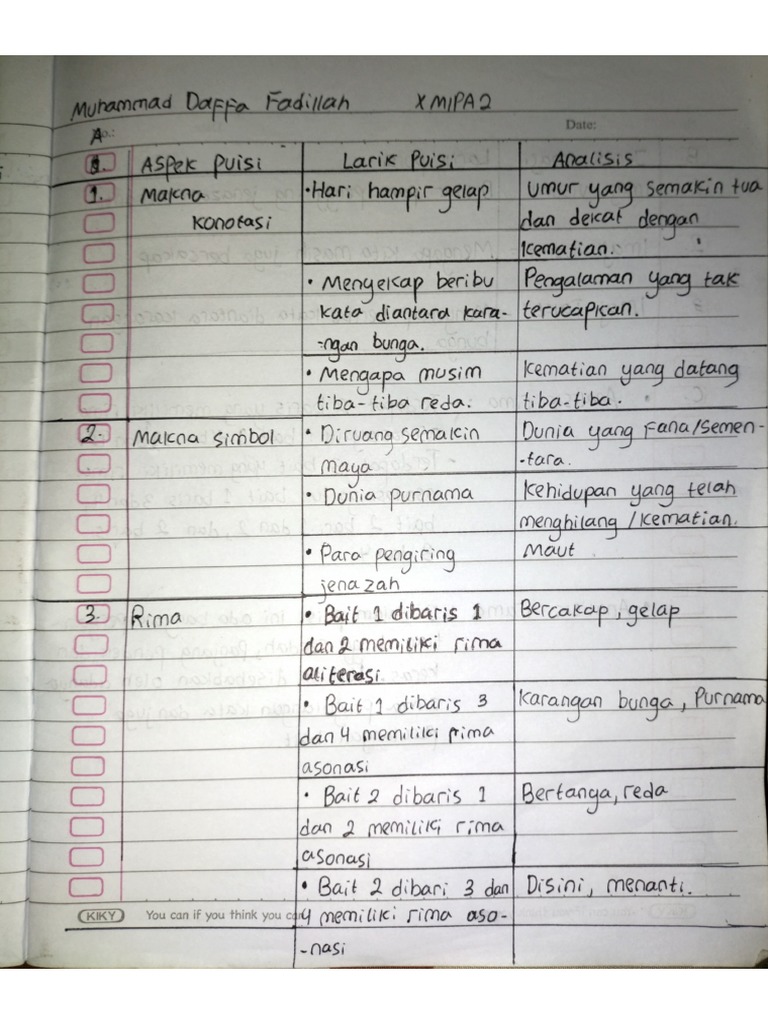 Muhammad Daffa Fadillah X MIPA 2
A No.: Date:
Aspek Puisi Larik Puisi Analisis
1. Makna • Hari hampir gelap Umur yang semakin tua
Konotasi dan dekat dengan
kematian.
• Menyekap beribu Pengalaman yang tak
kata diantara kara- terucapkan.
-ngan bunga.
• Mengapa musim Kematian yang datang
tiba-tiba reda. tiba-tiba.
2. Makna simbol • Diruang semakin Dunia yang Fana/Semen-
maya -tara.
• Dunia purnama Kehidupan yang telah
menghilang/kematian.
• Para pengiring Maut
jenazah
3. Rima • Bait 1 dibaris 1 Bercakap, gelap
dan 2 memiliki rima
aliterasi
• Bait 1 dibaris 3 Karangan bunga, Purnama
dan 4 memiliki rima
asonasi
• Bait 2 dibaris 1 Bertanga, reda
dan 2 memiliki rima
asonasi
• Bait 2 dibari 3 dan Disini, menanti.
KIKY You can if you think you can 4 memiliki rima aso-
-nasi